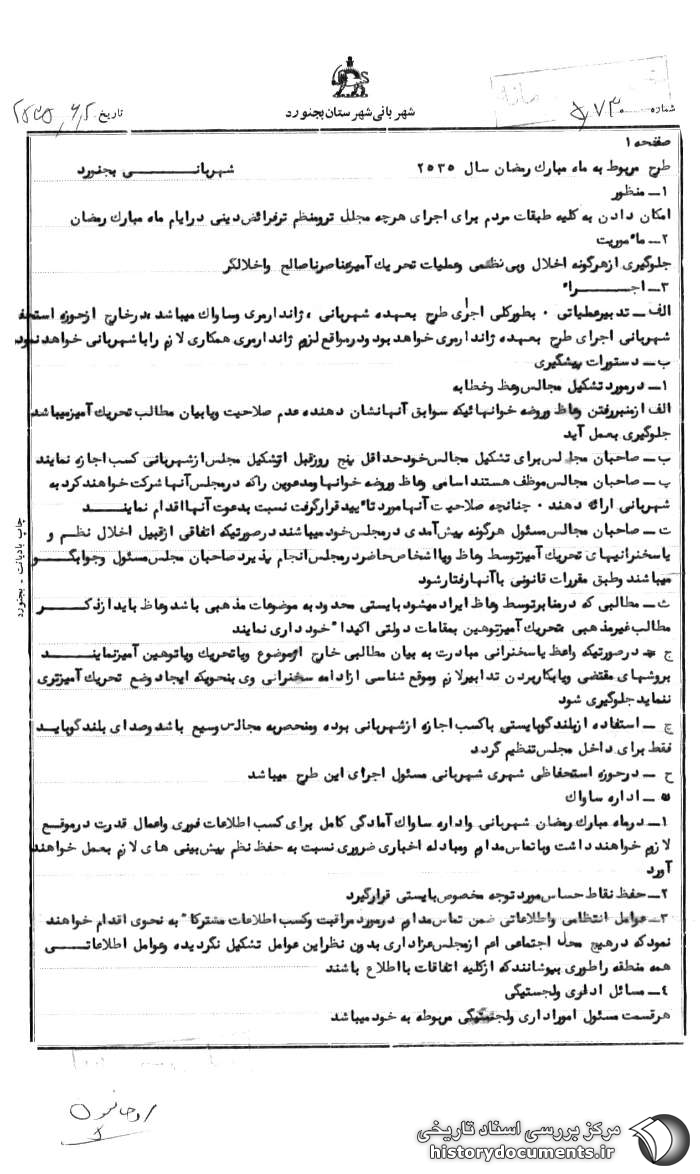 شهربانی شهرستان بجنورد
شماره
تاریخ ۲۵۳۵٫۶٫۲
صفحه ۱
طرح مربوط به ماه مبارك رمضان سال ۲۵۳۵ شهربانــی بجنورد
۱ــ منظور
امکان دادن به کلیه طبقات مردم برای اجرای هرچه مجلل ترومنظم ترفرائض دینی درایام ماه مبارك رمضان
۲ــ مأموریت
جلوگیری ازهرگونه اخلال وبی نظمی وعملیات تحریك آمیزعناصرناصالح واخلالگر
۳ــ اجــراء
الف ــ تدبیرعملیاتی ۰ بطورکلی اجرای طرح بعهده شهربانی ، ژاندارمری وساواك میباشد ،درخارج ازحوزه استحفا
شهربانی اجرای طرح بعهده ژاندارمری خواهد بود ودرمواقع لزوم ژاندارمری همکاری لازم راباشهربانی خواهد نمود
ب ــ دستورات پیشگیری
۱ــ درمورد تشکیل مجالس وعظ وخطابه
الف ازمنبررفتن وعاظ وروضه خوانهائیکه سوابق آنهانشان دهنده عدم صلاحیت ویابیان مطالب تحریك آمیزمیباشد
جلوگیری بعمل آید
ب ــ صاحبان مجالس برای تشکیل مجالس خودحداقل پنج روزقبل ازتشکیل مجلس ازشهربانی کسب اجازه نمایند
پ ــ صاحبان مجالس موظف هستند اسامی وعاظ وروضه خوانهاومدعوین راکه درمجلس آنهاشرکت خواهند کرد به
شهربانی ارائه دهند ۰ چنانچه صلاحیت آنهامورد تأیید قرارگرفت نسبت بدعوت آنهااقدام نماینــد
ت ــ صاحبان مجالس مسئول هرگونه پیش آمدی درمجلس خود میباشند درصورتیکه اتفاقی ازقبیل اخلال نظم و
یاسخنرانیهای تحریك آمیزتوسط وعاظ ویااشخاص حاضردرمجلس انجام پذیرد صاحبان مجلس مسئول وجوابگــو
میباشند وطبق مقررات قانونی باآنهارفتارشود
ث ــ مطالبی که درمنابرتوسط وعاظ ایراد میشود بایستی محدود به موضوعات مذهبی باشد وعاظ بایدازذکــر
مطالب غیرمذهبی ،تحریك آمیزتوهین بمقامات دولتی اکیداً خود داری نمایند
ج ــ درصورتیکه واعظ یاسخنرانی مبادرت به بیان مطالبی خارج ازموضوع ویاتحریك ویاتوهین آمیزنماینــد
بروشهای مقتضی وبابکاربردن تدابیرلازم وموقع شناسی ازادامه سخنرانی وی بنحویکه ایجاد وضع تحریك آمیزتری
ننماید جلوگیری شود
چ ــ استفاده ازبلند گوبایستی باکسب اجازه ازشهربانی بوده ومنحصربه مجالس وسیع باشد وصدای بلند گوبایــد
فقط برای داخل مجلس تنظیم گردد
ح ــ درحوزه استحفاظی شهری شهربانی مسئول اجرای این طرح میباشد
ــ اداره ساواك
۱ــ درماه مبارك رمضان شهربانی واداره ساواك آمادگی کامل برای کسب اطلاعات فوری واعمال قدرت درموقــع
لازم خواهند داشت وباتماس مداوم ومبادله اخباری ضروری نسبت به حفظ نظم پیش بینی های لازم بعمل خواهند
آورد
۲ــ حفظ نقاط حساس مورد توجه مخصوص بایستی قرارگیرد
۳ــ عوامل انتظامی واطلاعاتی ضمن تماس مداوم درمورد مراقبت وکسب اطلاعات مشترکاً به نحوی اقدام خواهند
نمود که درهیچ محل اجتماعی اعم ازمجلس عزاداری بدون نظراین عوامل تشکیل نگردیده وعوامل اطلاعاتــی
همه منطقه راطوری بپوشانند که ازکلیه اتفاقات بااطلاع باشند
۴ــ مسائل اداری ولجستیکی
هرقسمت مسئول اموراداری ولجستیکی مربوطه به خود میباشد
چاپ بادیانت - بجنورد
مرکز بررسی اسناد تاریخی
historydocuments.ir